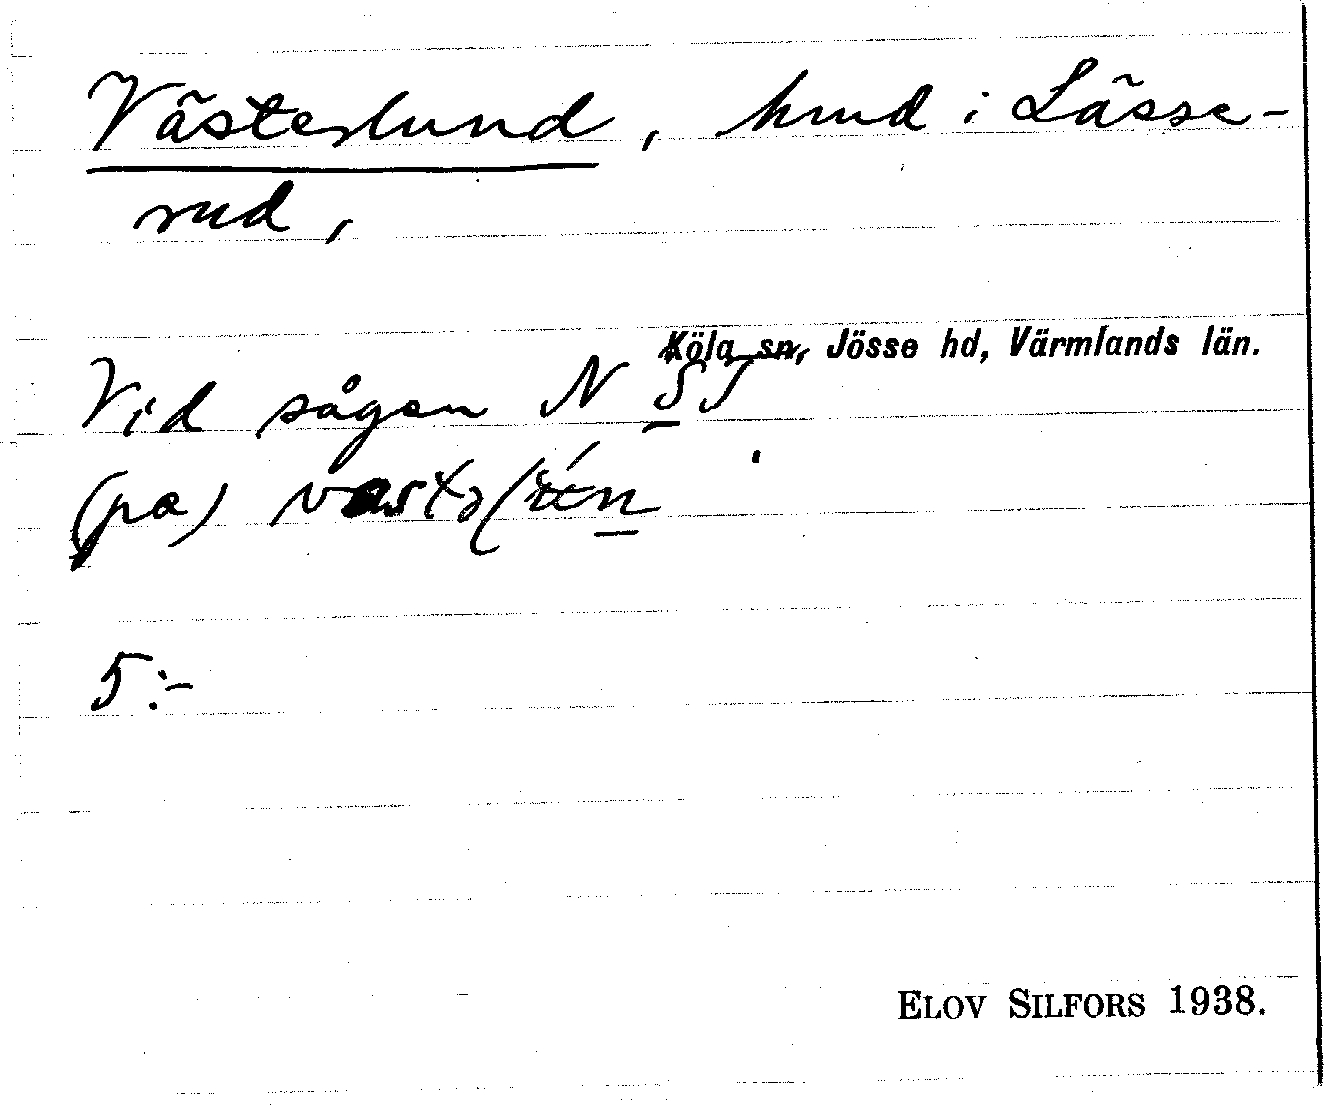 Västerlund, hmd i Lässe-
rud,
Köla sn, Jösse hd, Värmlands län.
Vid sågen N S J
(pa)
5:-
ELOV SILFORS 1938.